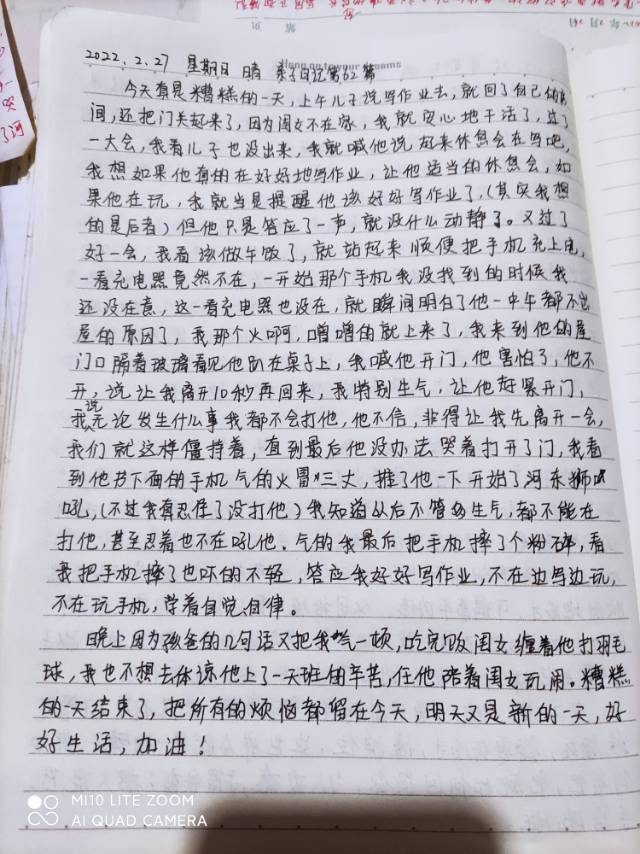 2022.2.27 星期日 晴 亲子日记第62篇
今天真是糟糕的一天，上午儿子说写作业去，就回了自己的房
间，还把门关起来了，因为闺女不在家，我就安心地干活了，过了
一大会，我看儿子也没出来，我就喊他说起来休息会在写吧，
我想如果他真的在好好地写作业，让他适当的休息会，如
果他在玩，我就当是提醒他该好好写作业了，（其实我想
的是后者）但他只是答应了一声，就没什么动静了。又过了
好一会，我看该做午饭了，就站起来顺便把手机充上电，
一看充电器竟然不在，一开始那个手机我没找到的时候我
还没在意，这一看充电器也没在，就瞬间明白了他一中午都不出
屋的原因了，我那个火啊，噌噌的就上来了，我来到他的屋
门口隔着玻璃看见他趴在桌子上，我喊他开门，他害怕了，他不
开，说让我离开10秒再回来，我特别生气，让他赶紧开门，
我说无论发生什么事我都不会打他，他不信，非得让我先离开一会，
我们就这样僵持着，直到最后他没办法哭着打开了门，我看
到他书下面的手机气的火冒三丈，推了他一下开始了河东狮
吼，（不过我真忍住了没打他）我知道以后不管多生气，都不能在
打他，甚至忍着也不在吼他．气的我最后把手机摔了个粉碎，看
我把手机摔了也吓的不轻，答应我好好写作业，不在边写边玩，
不在玩手机，学着自觉自律。
晚上因为孩爸的几句话又把我气一顿，吃完饭闺女缠着他打羽毛
球，我也不想去体谅他上了一天班的辛苦，任他陪着闺女玩闹。糟糕
的一天结束了，把所有的烦恼都留在今天，明天又是新的一天，好
好生活，加油！
MI 10 LITE ZOOM
AI QUAD CAMERA